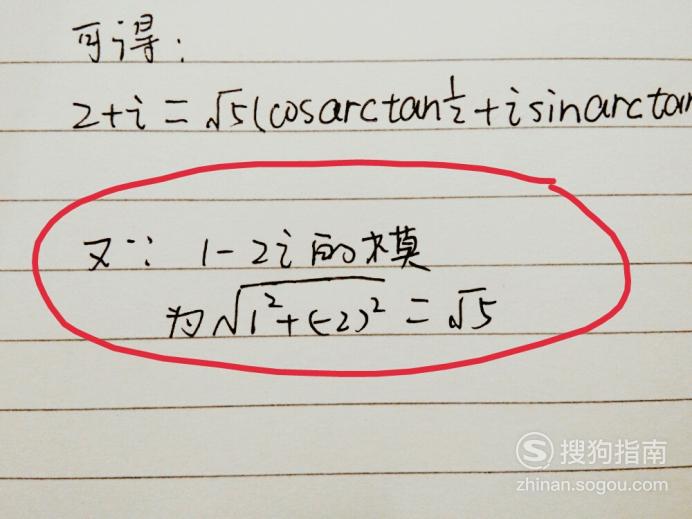 可得：
2+i=√5(cosarctan½+isinarctan
又∵ 1-2i的模
为√1²+(-2)²=√5
搜狗指南
zhinan.sogou.com